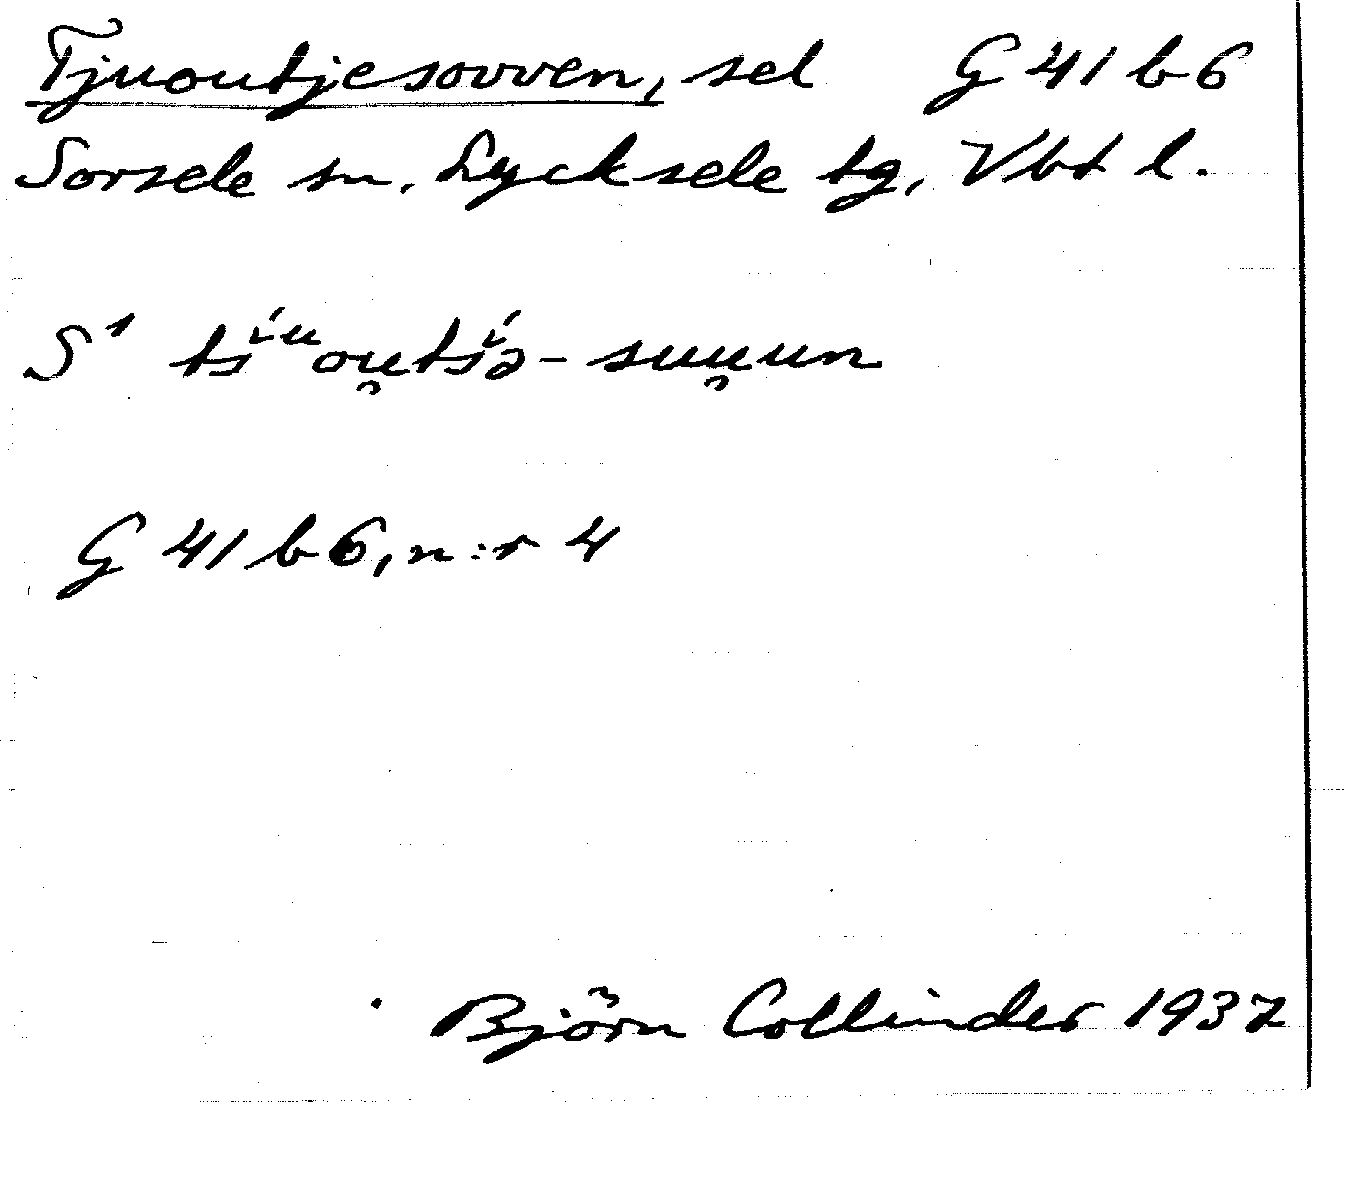 Tjuoutjesovven, sel G 41 b 6
Sorsele sn. Lycksele tg, Vbt l.
S¹ tśᶦᵘou̯tśᶦə-suu̯un
G 41 b 6, n:r 4
Björn Collinder 1937